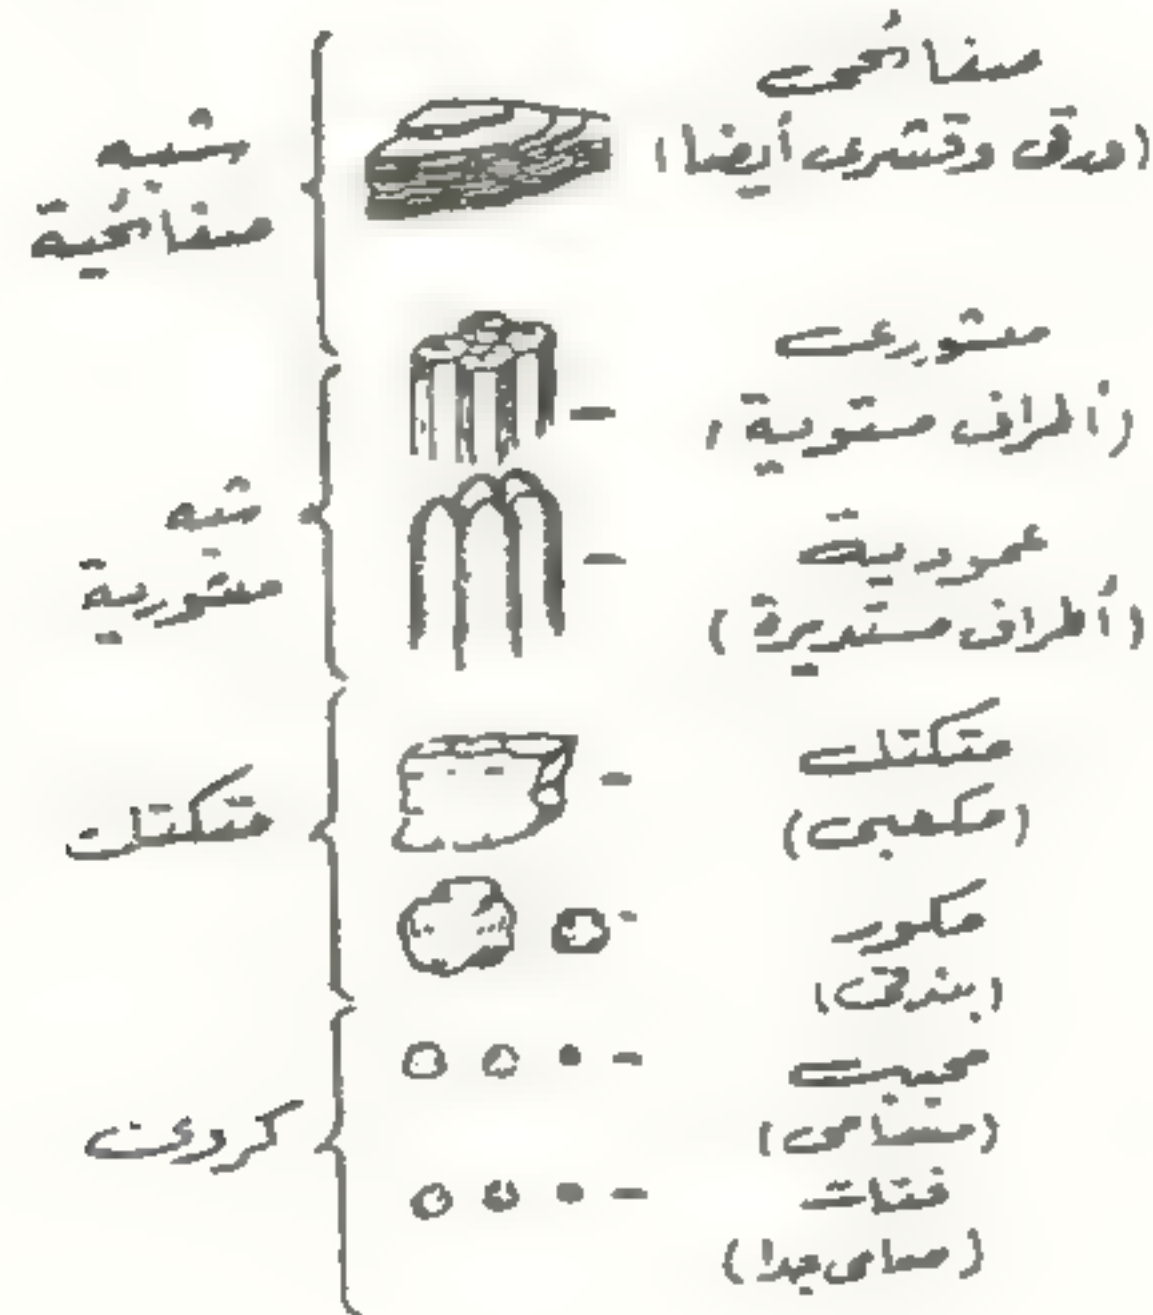 صفائحى
(ورقى وقشرى أيضا)
شبه
صفائحية
منشورى
(أطراف مستوية)
عمودية
(أطراف مستديرة)
شبه
منشورية
متكتل
(مكعبى)
متكتل
مكور
(بندقى)
محبب
(مسامى)
فتات
(مسامى جدا)
كروى